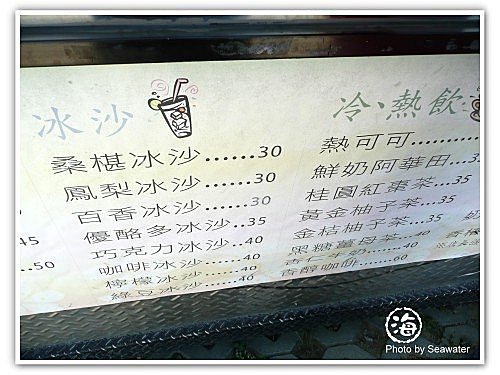 冰沙
桑椹冰沙......30
鳳梨冰沙......30
百香冰沙......30
優酪多冰沙...35
巧克力冰沙...40
咖啡冰沙......40
檸檬冰沙......40
綠豆冰沙......40
45
...50
冷、熱飲
熱可可.........
鮮奶阿華田...35
桂圓紅棗茶...35
黃金柚子茶...35
金桔柚子茶...35
黑糖薑母茶...40
杏仁牛奶......40
香醇咖啡......60
奶
海
Photo by Seawater